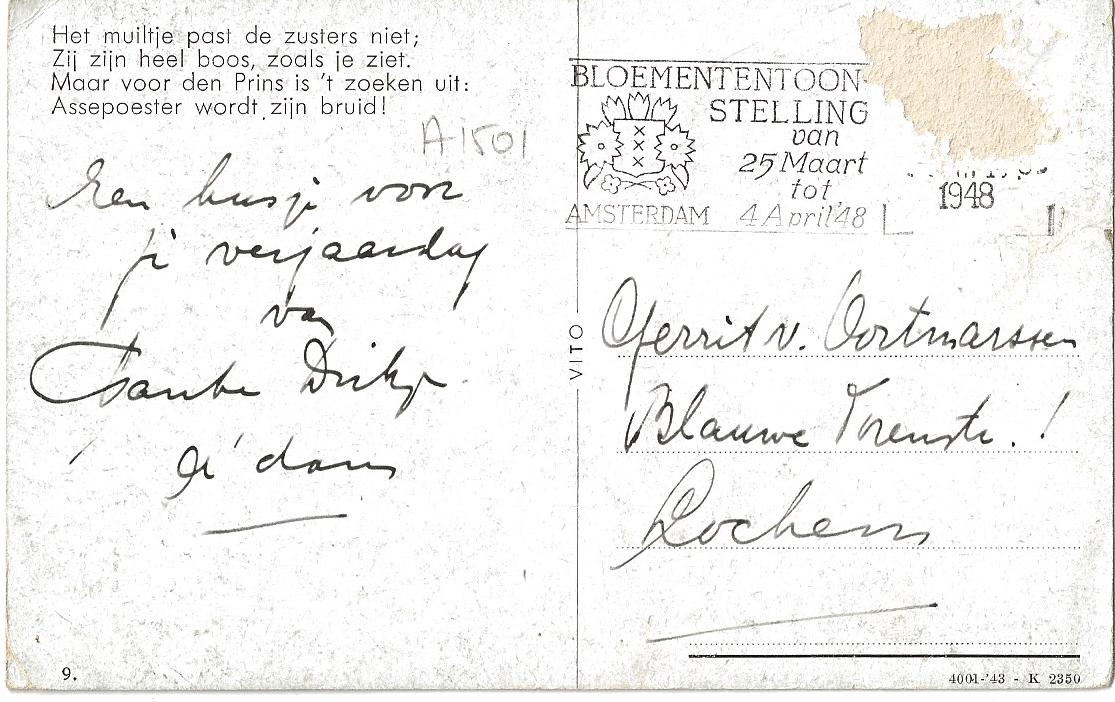 Het muiltje past de zusters niet;
Zij zijn heel boos, zoals je ziet.
Maar voor den Prins is 't zoeken uit:
Assepoester wordt zijn bruid!
A1501
Een kusje voor
je verjaardag
van
Tante Dirkje
A'dam
BLOEMENTENTOON-
STELLING
van
25 Maart
tot
4 April '48
AMSTERDAM
1948
VITO
Gerrit v. Oortmarssen
Blauwe Torenstr. !
Lochem
9.
4001-'43 - K 2350